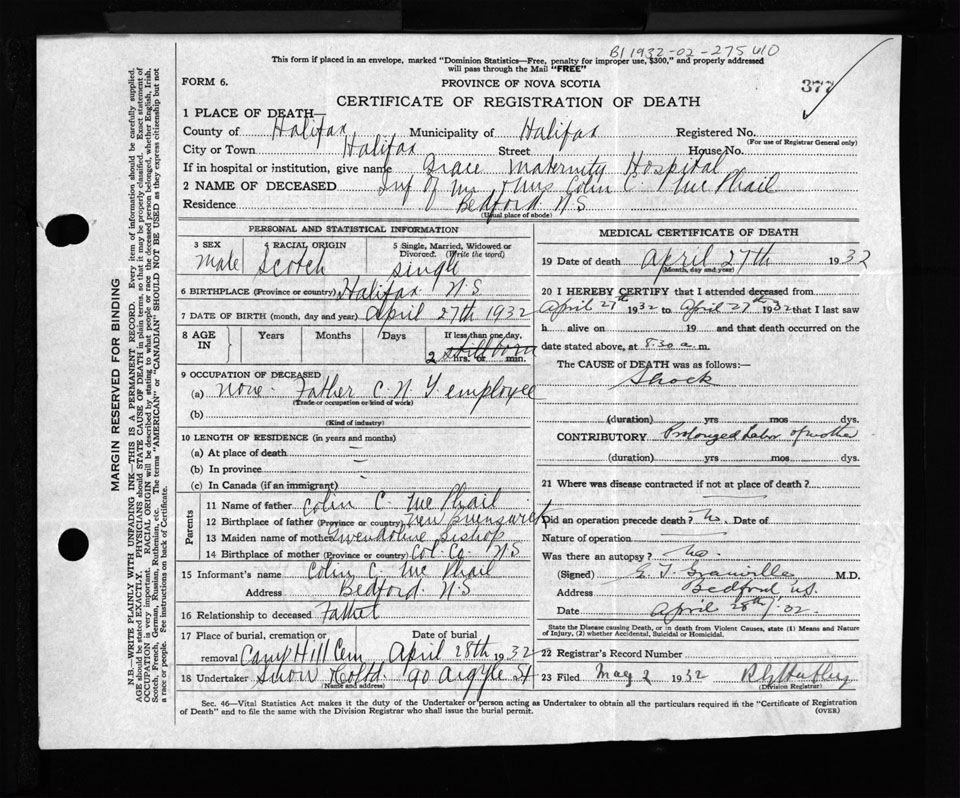 B1 1932-02-275410
This form if placed in an envelope, marked "Dominion Statistics—Free, penalty for improper use, $300," and properly addressed
will pass through the Mail "FREE"
377
FORM 6.
PROVINCE OF NOVA SCOTIA
CERTIFICATE OF REGISTRATION OF DEATH
1 PLACE OF DEATH—
County of Halifax Municipality of Halifax Registered No.
(For use of Registrar General only)
City or Town Halifax Street House No.
If in hospital or institution, give name Grace Maternity Hospital
2 NAME OF DECEASED Inf of Mr & Mrs Colin C. McPhail
Residence Bedford N.S
(Usual place of abode)
PERSONAL AND STATISTICAL INFORMATION
3 SEX 4 RACIAL ORIGIN 5 Single, Married, Widowed or
Divorced. (Write the word)
Male Scotch single
6 BIRTHPLACE (Province or country) Halifax N.S.
7 DATE OF BIRTH (month, day and year) April 27th 1932
8 AGE IN Years Months Days If less than one day,
2 stillborn hrs. or min.
9 OCCUPATION OF DECEASED
(a) none. Father C. N. Y employee
(Trade or occupation or kind of work)
(b)
(Kind of industry)
10 LENGTH OF RESIDENCE (in years and months)
(a) At place of death
(b) In province
(c) In Canada (if an immigrant)
Parents
11 Name of father Colin C. McPhail
12 Birthplace of father (Province or country) New Brunswick
13 Maiden name of mother Gwendoline Bishop
14 Birthplace of mother (Province or country) Col. Co. N.S
15 Informant's name Colin C. McPhail
Address Bedford. N.S
16 Relationship to deceased Father
17 Place of burial, cremation or Date of burial
removal Camp Hill Cem April 28th 1932
18 Undertaker Snow Co Ltd 90 Argyle St
(Name and address)
MEDICAL CERTIFICATE OF DEATH
19 Date of death April 27th 1932
(Month, day and year)
20 I HEREBY CERTIFY that I attended deceased from
April 27th 1932 to April 27th 1932 that I last saw
h alive on 19 and that death occurred on
date stated above, at 8.30 a. m.
The CAUSE OF DEATH was as follows:—
Shock
(duration) yrs mos dys.
CONTRIBUTORY Prolonged labor of mother
(duration) yrs mos dys.
21 Where was disease contracted if not at place of death?
Did an operation precede death? No. Date of
Nature of operation
Was there an autopsy? No
(Signed) G. T. Granville M.D.
Address Bedford N.S.
Date April 28th/32.
State the Disease causing Death, or in death from Violent Causes, state (1) Means and Nature
of Injury, (2) whether Accidental, Suicidal or Homicidal.
22 Registrar's Record Number
23 Filed May 2 1932
(Division Registrar)
Sec. 46—Vital Statistics Act makes it the duty of the Undertaker or person acting as Undertaker to obtain all the particulars required in the "Certificate of Registration
of Death" and to file the same with the Division Registrar who shall issue the burial permit.
(OVER)
MARGIN RESERVED FOR BINDING
N.B.—WRITE PLAINLY WITH UNFADING INK—THIS IS A PERMANENT RECORD. Every item of information should be carefully supplied.
AGE should be stated EXACTLY. PHYSICIANS should STATE CAUSE OF DEATH in plain terms, so that it may be properly classified. Exact statement of
OCCUPATION is very important. RACIAL ORIGIN will be described by stating to what people or race the deceased person belonged, whether English, Irish,
Scotch, French, German, Russian, Ruthenian, etc. The terms "AMERICAN" or "CANADIAN" SHOULD NOT BE USED as they express citizenship but not
a race or people. See instructions on back of Certificate.